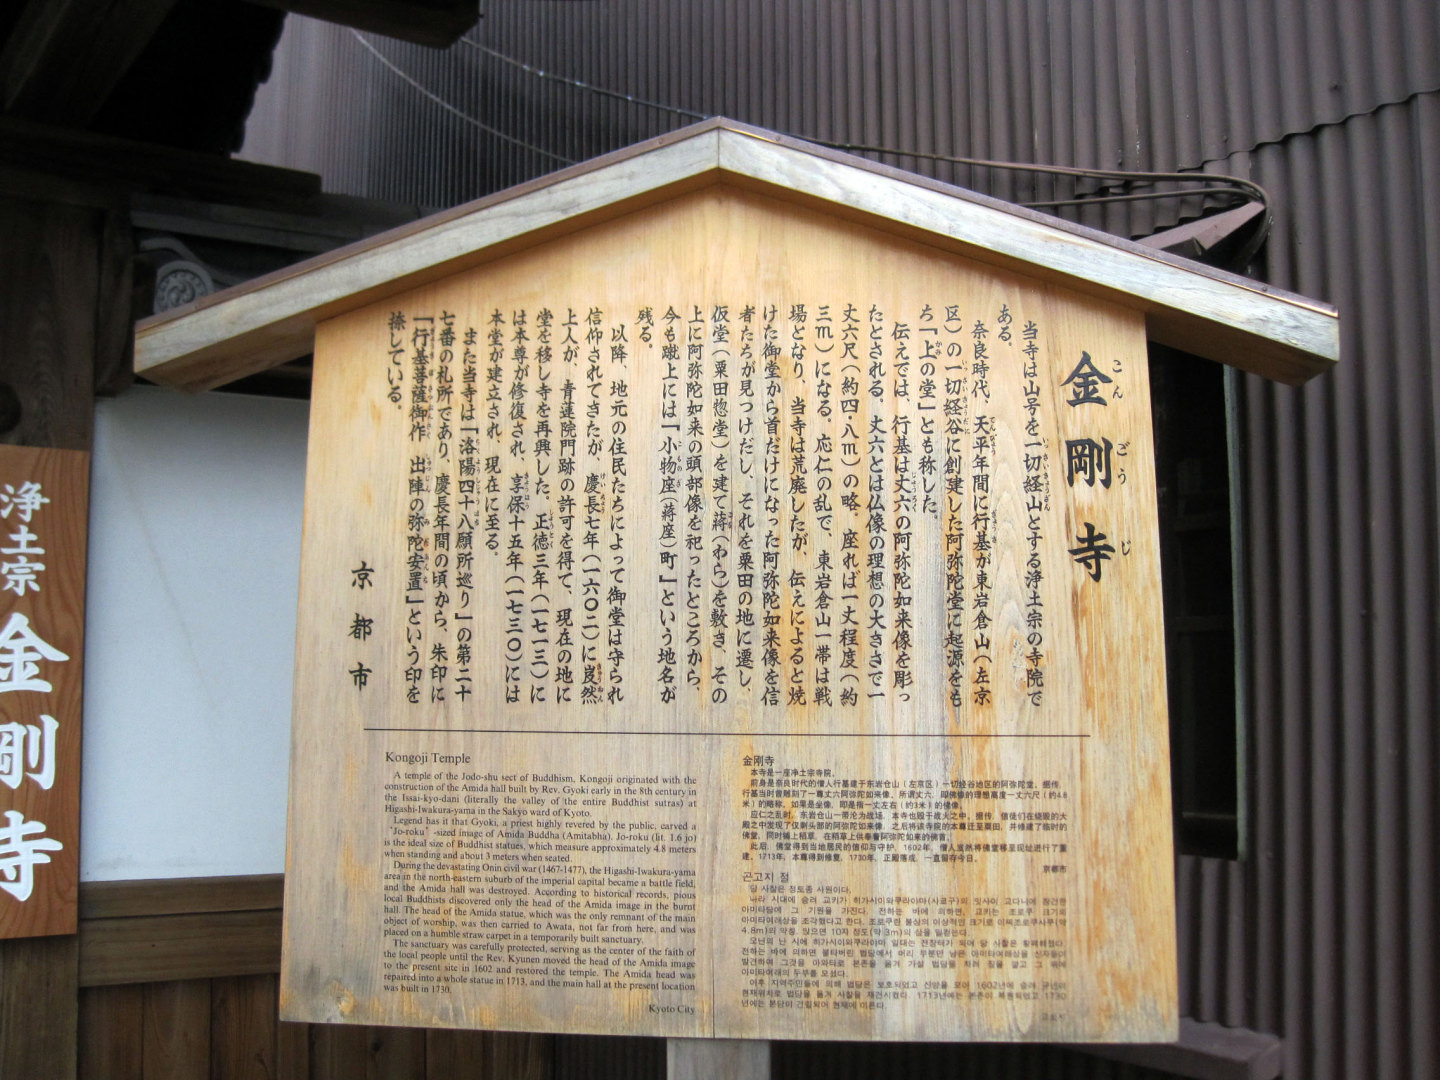 金剛寺
こんごうじ
当寺は山号を一切経山とする浄土宗の寺院で
ある。
奈良時代、天平年間に行基が東岩倉山（左京
区）の一切経谷に創建した阿弥陀堂に起源をも
ち「上の堂」とも称した。
伝えでは、行基は丈六の阿弥陀如来像を彫っ
たとされる。丈六とは仏像の理想の大きさで一
丈六尺（約四・八ｍ）の略。座れば一丈程度（約
三ｍ）になる。応仁の乱で、東岩倉山一帯は戦
場となり、当寺は荒廃したが、伝えによると焼
けた御堂から首だけになった阿弥陀如来像を信
者たちが見つけだし、それを粟田の地に遷し、
仮堂（粟田惣堂）を建て蒋（わら）を敷き、その
上に阿弥陀如来の頭部像を祀ったところから、
今も蹴上には「小物座（蒋座）町」という地名が
残る。
以降、地元の住民たちによって御堂は守られ
信仰されてきたが、慶長七年（一六〇二）に岌然
上人が、青蓮院門跡の許可を得て、現在の地に
堂を移し寺を再興した。正徳三年（一七一三）に
は本尊が修復され、享保十五年（一七三〇）には
本堂が建立され、現在に至る。
また当寺は「洛陽四十八願所巡り」の第二十
七番の札所であり、慶長年間の頃から、朱印に
「行基菩薩御作 出陣の弥陀安置」という印を
捺している。
京都市
Kongoji Temple
A temple of the Jodo-shu sect of Buddhism, Kongoji originated with the
construction of the Amida hall built by Rev. Gyoki early in the 8th century in
the Issai-kyo-dani (literally the valley of the entire Buddhist sutras) at
Higashi-Iwakura-yama in the Sakyo ward of Kyoto.
Legend has it that Gyoki, a priest highly revered by the public, carved a
"Jo-roku" -sized image of Amida Buddha (Amitabha). Jo-roku (lit. 1.6 jo)
is the ideal size of Buddhist statues, which measure approximately 4.8 meters
when standing and about 3 meters when seated.
During the devastating Onin civil war (1467-1477), the Higashi-Iwakura-yama
area in the north-eastern suburb of the imperial capital became a battle field,
and the Amida hall was destroyed. According to historical records, pious
local Buddhists discovered only the head of the Amida image in the burnt
hall. The head of the Amida statue, which was the only remnant of the main
object of worship, was then carried to Awata, not far from here, and was
placed on a humble straw carpet in a temporarily built sanctuary.
The sanctuary was carefully protected, serving as the center of the faith of
the local people until the Rev. Kyunen moved the head of the Amida image
to the present site in 1602 and restored the temple. The Amida head was
repaired into a whole statue in 1713, and the main hall at the present location
was built in 1730.
Kyoto City
金刚寺
本寺是一座净土宗寺院。
前身是奈良时代的僧人行基建于东岩仓山（左京区）一切经谷地区的阿弥陀堂。据传，
行基当时曾雕刻了一尊丈六阿弥陀如来像。所谓丈六，即佛像的理想高度一丈六尺（约4.8
米）的略称，如果是坐像，即是指一丈左右（约3米）的佛像。
应仁之乱时，东岩仓山一带沦为战场，本寺也毁于战火之中。据传，信徒们在烧毁的大
殿之中发现了仅剩头部的阿弥陀如来像，之后将该寺院的本尊迁至粟田，并修建了临时的
佛堂，同时铺上稻草，在稻草上供奉着阿弥陀如来的佛首。
此后，佛堂得到当地居民的信仰与守护，1602年，僧人岌然将佛堂移至现址进行了重
建。1713年，本尊得到修复，1730年，正殿落成，一直留存今日。
京都市
곤고지 절
당 사찰은 정토종 사원이다.
浄土宗 金剛寺